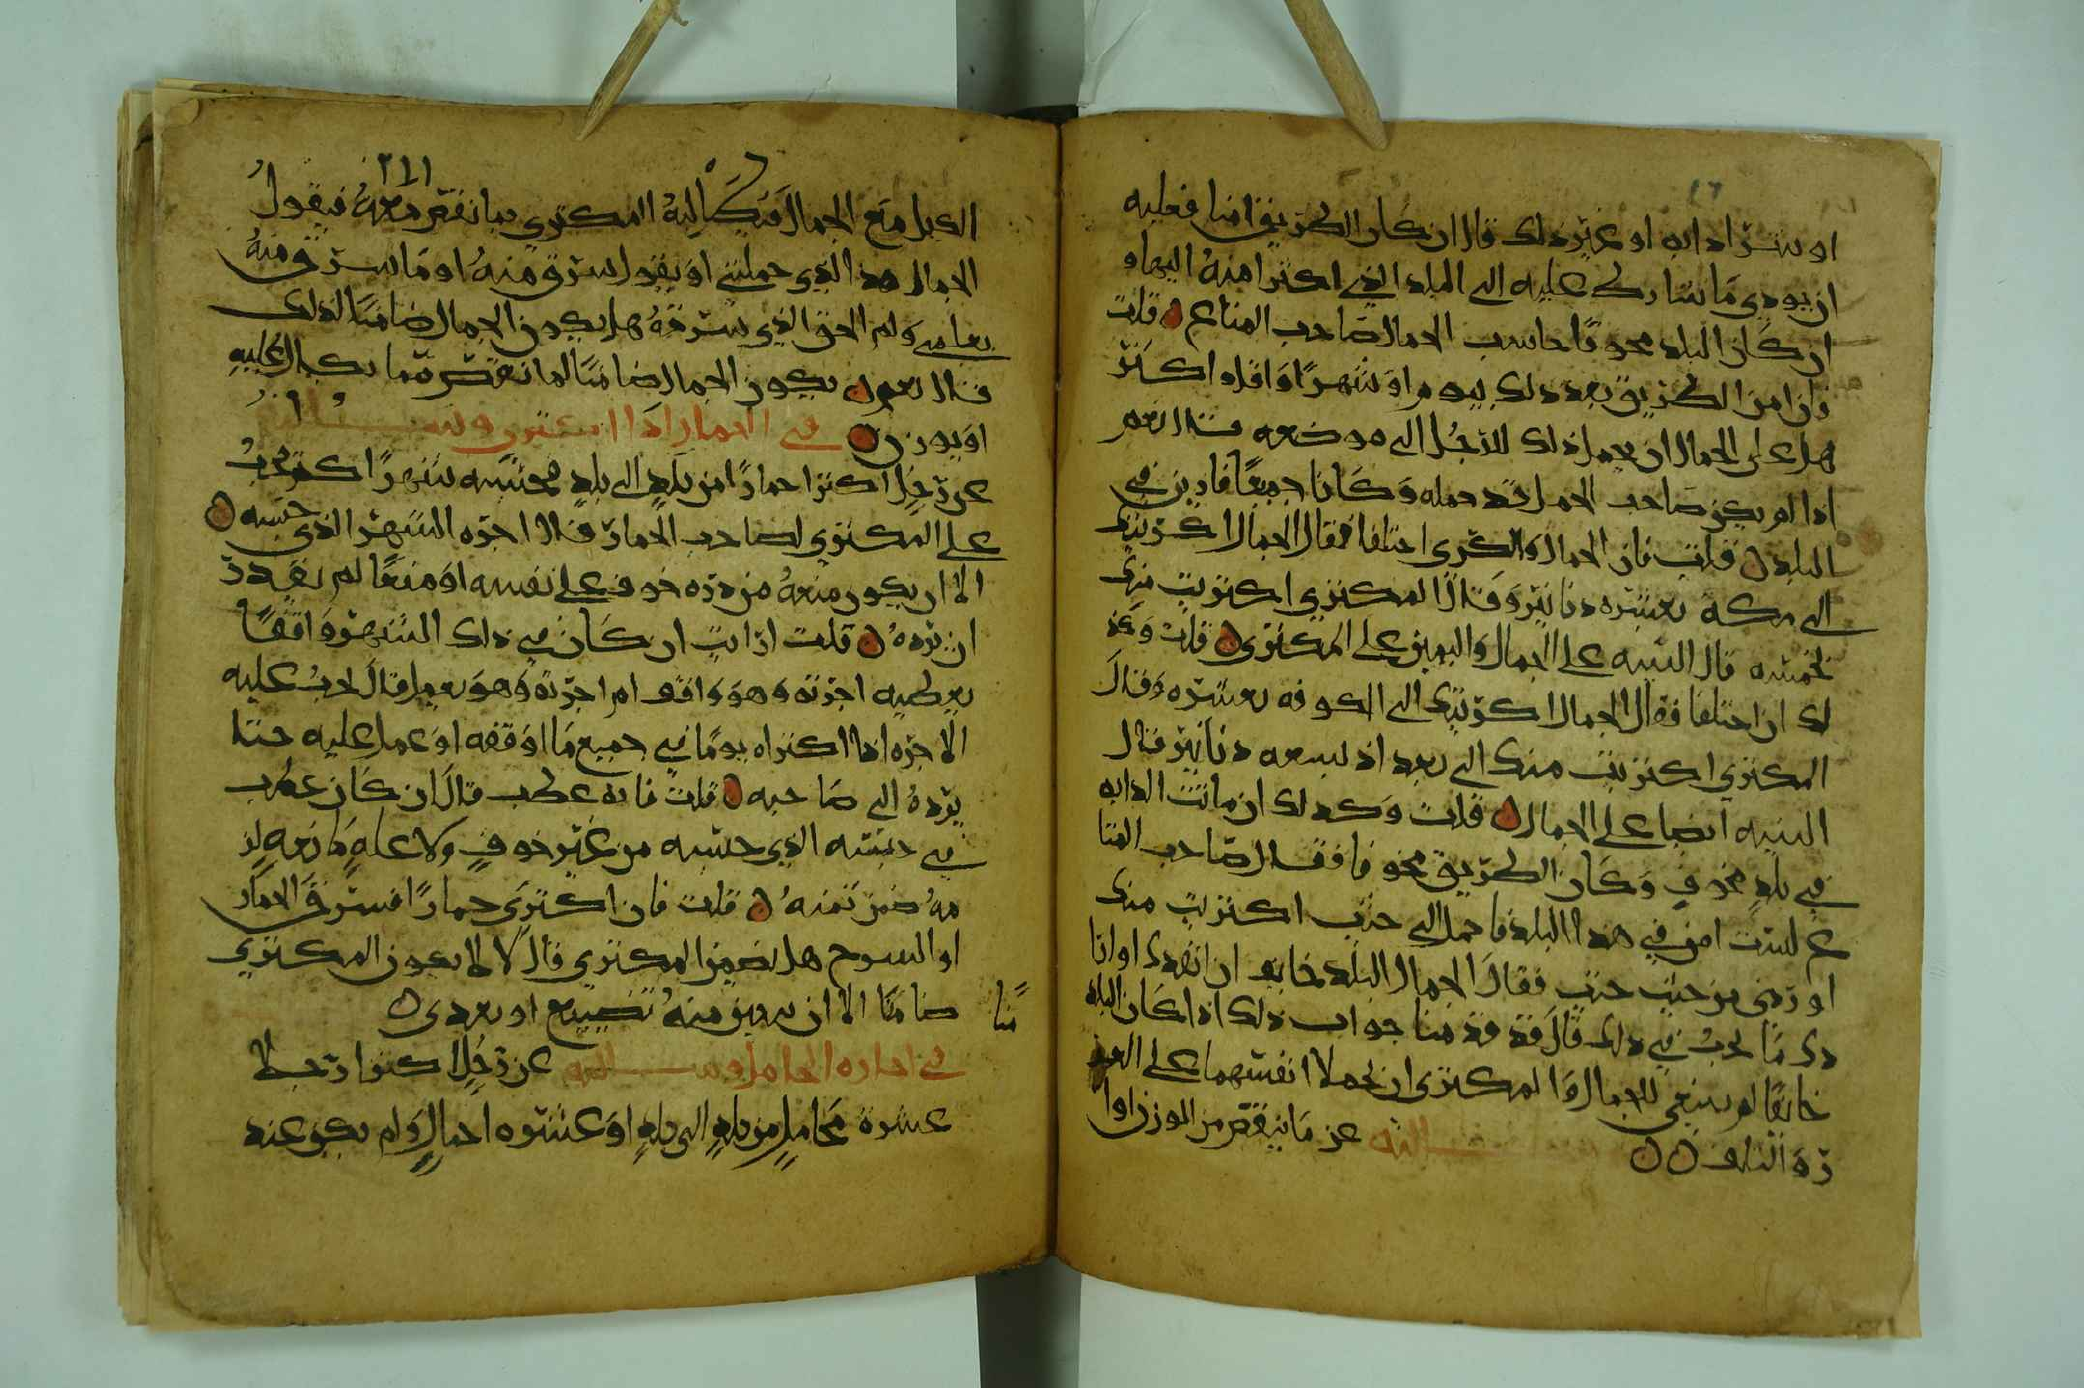 او يشترا دابه او غير ذلك قال ان كان الطريق امنا فعليه
ان يودي ما تشارطى عليه الى البلد الذي اكترا منه اليها و
ان كان البلد مخوفا حاسب الجمال صاحب المتاع قلت
فان امن الطريق بعد ذلك بيوم او شهرا او اقل او اكثر
هل على الجمال ان يحمل ذلك للرجل الى موضعه قال نعم
اذا لم يكن صاحب الحمل قد حمله وكانا جميعا قادين في
البلد قلت فان الجمال والمكري اختلفا فقال الجمال اكريتك
الى مكه بعشره دنانير وقال المكتري اكتريت منك
بخمسه قال البينه على الجمال واليمين على المكتري قلت وكذ
لك ان اختلفا فقال الجمال اكريتك الى الكوفه بعشره وقال
المكتري اكتريت منك الى بغداد بسبعه دنانير قال
البينه ايضا على الجمال قلت وكذلك ان ماتت الدابه
في بلد مخوف وكان الطريق مخوفا فقال صاحب المتا
ع لست امن في هذا البلد فاحمل الى حيث اكتريت منك
او ردني من حيث جيت فقال الجمال البلد خايف ان انفذك او انا
دك ما يجب في ذلك قال قد قدمنا جواب ذلك اذا كان البلد
خايفا لم ينبغي للجمال والمكتري ان يحملا انفسهما على الغر
ره التلف وسالته عن ما ينقص من الموزن او ا
٢١١
الكيل مع الجمال فيكيل اليه المكتري فيا نقص معه فيقول
الجمال هذا الذي حملتني او يقول سرق منه او ما سرق منه
يعلم ولم الحق الذي سرقه هل يكون الجمال ضامنا لذلك
قال نعم يكون الجمال ضامنا لما نقص مما يكال عليه
او يوزن في الحمار اذا اكتري وسالته
عن رجل اكترا حمارا من بلد الى بلد فحبسه شهرا اكثر يجب
على المكتري لصاحب الحمار قال اجره الشهر الذي حبسه
الا ان يكون منعه من رده خوف على نفسه او منعا لم يقدر
ان يرده قلت ارايت ان كان في ذلك الشهر واقفا
يعطيه اجرته وهو واقف ام اجرته وهو يعمل قال يجب عليه
الاجره اذا اكتراه يوما في جميع ما اوقفه او عمل عليه حتا
يرده الى صاحبه قلت فانه عطب قال ان كان عطب
في حبسه الذي حبسه من غير خوف ولا عله مانعه لز
مه ضمن ثمنه قلت فان اكتري حمارا فسرق الحمار
او السرج هل يضمن المكتري قال لا لا يكون المكتري
ضامنا الا ان يكون منه تضييع او تعدي
في اجاره المحامل وسالته عن رجل اكترا رجلا
عشره محامل من بلد الى بلد او عشره احمال ولم يكن عنده